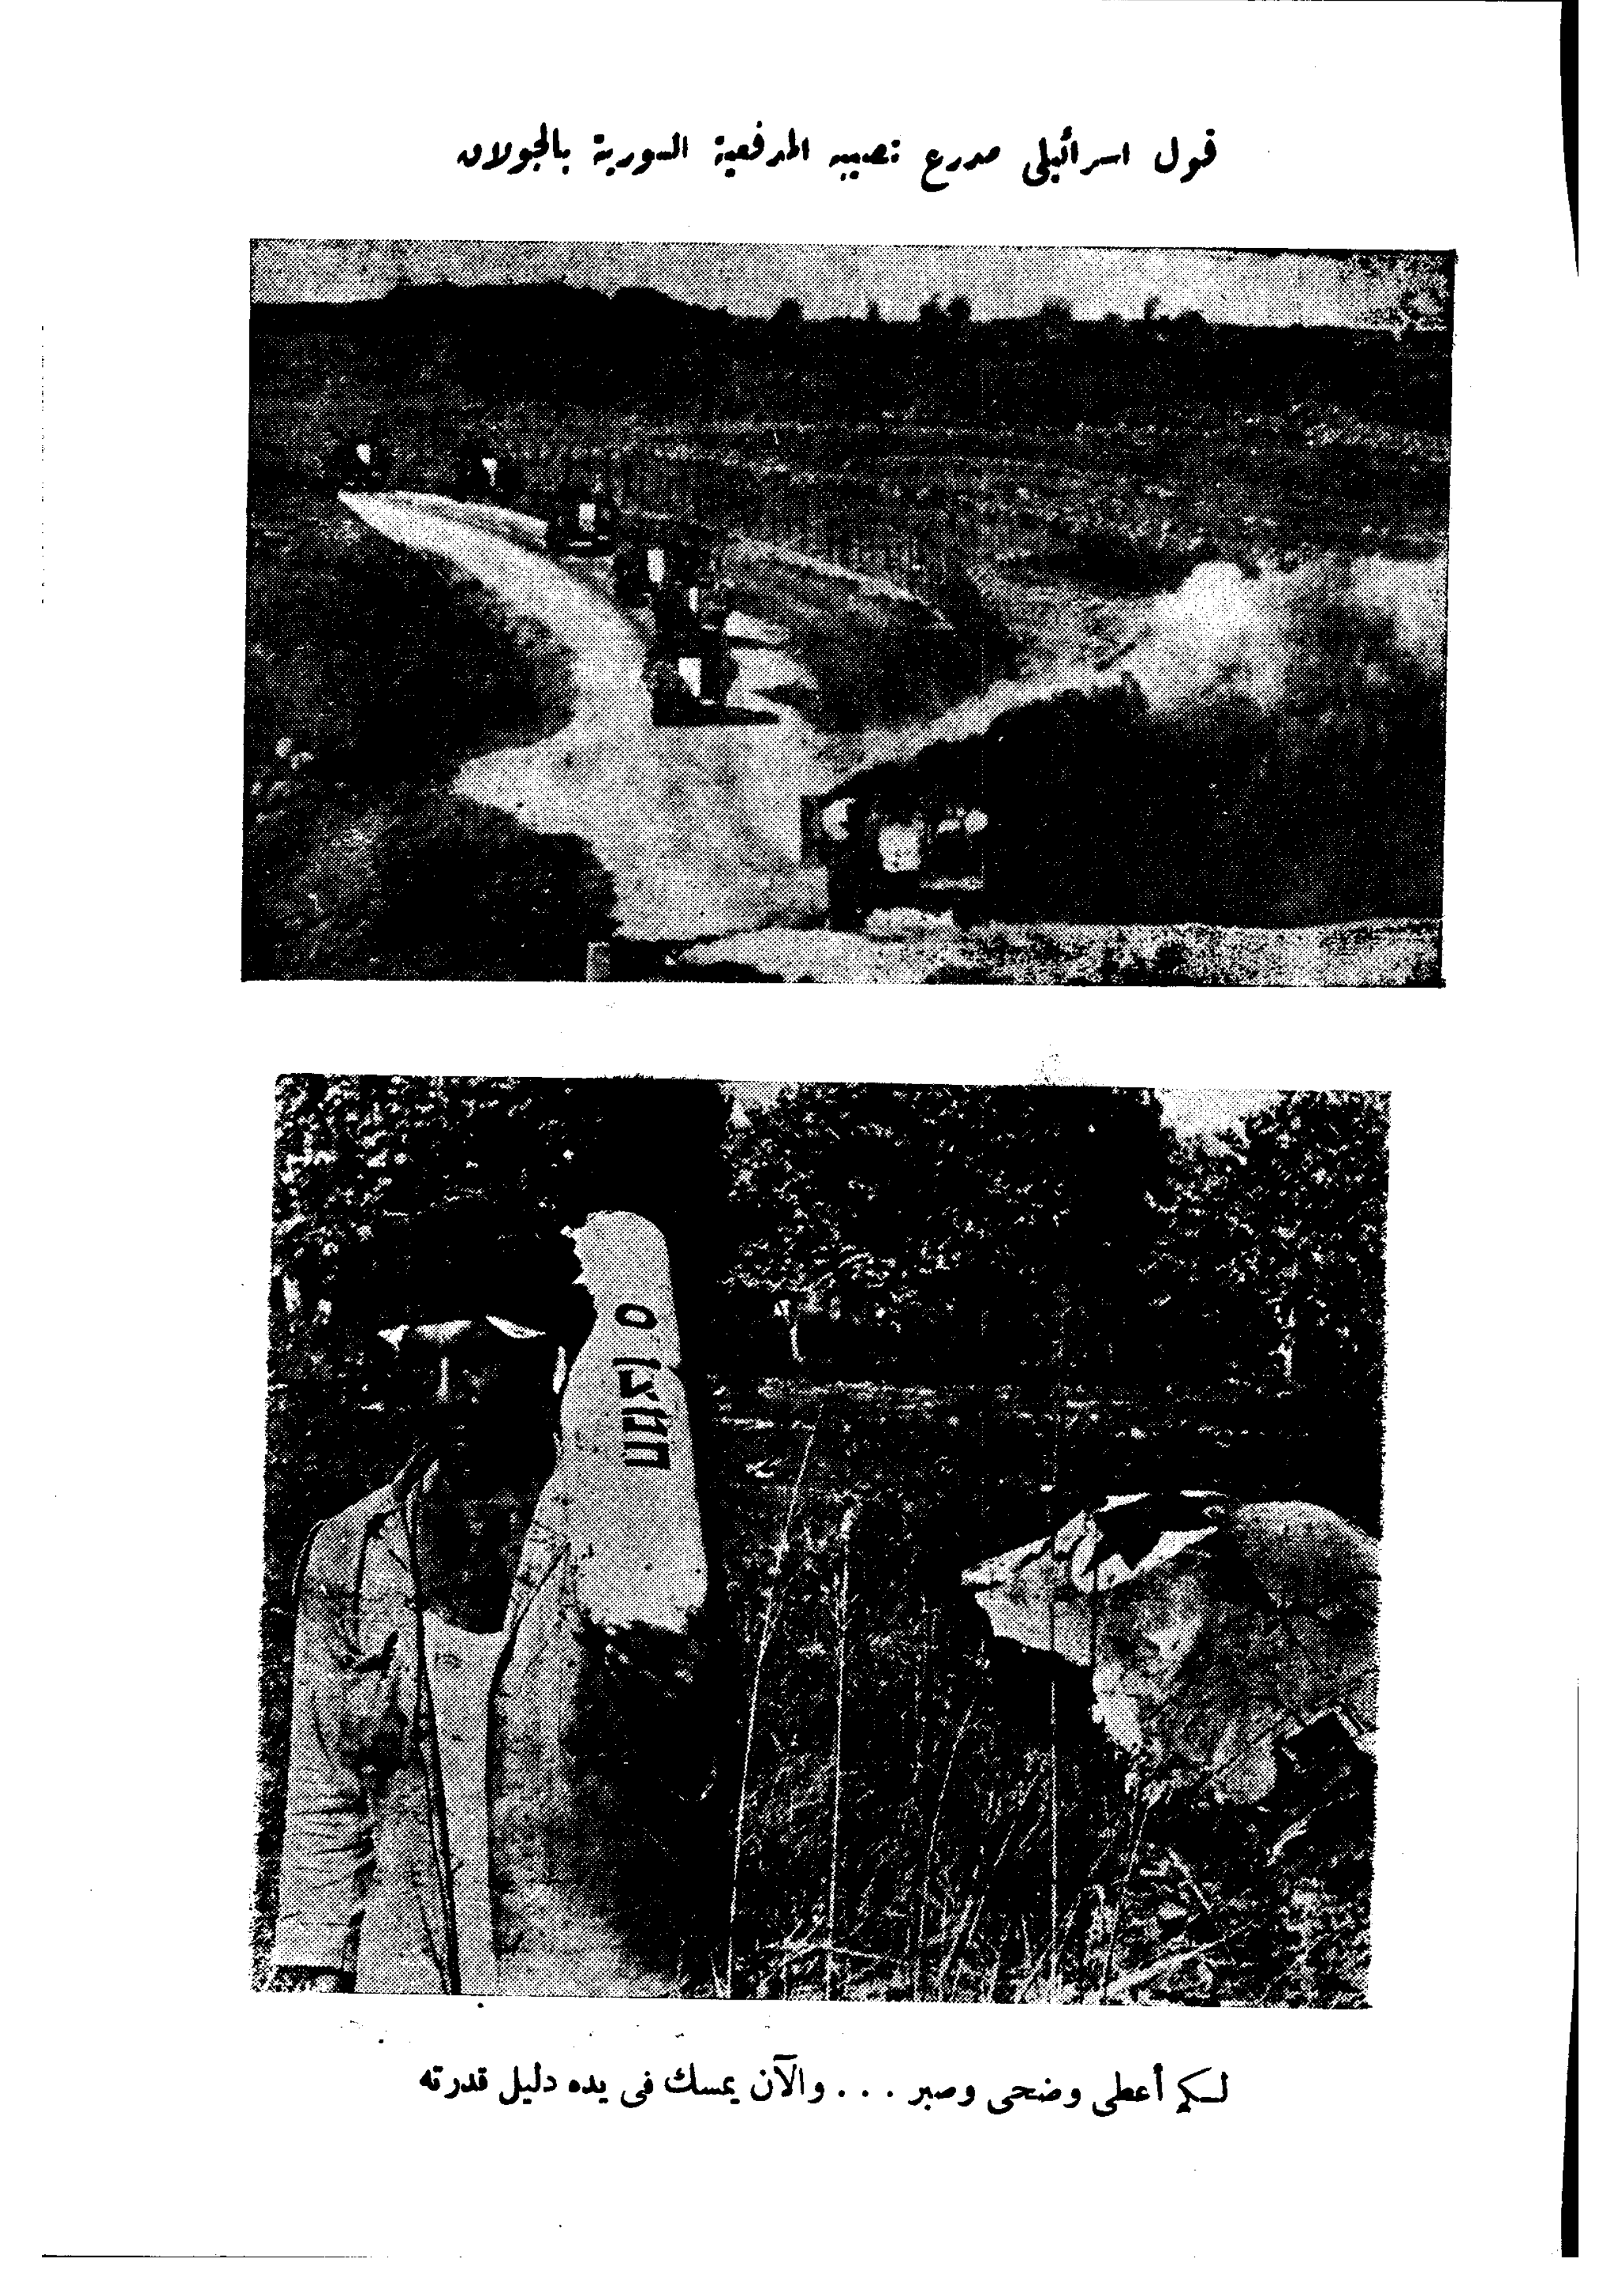 قول اسرائيلى مدرع تصيبه المدفعية السورية بالجولان
لكم أعطى وضحى وصبر . . . والآن يمسك فى يده دليل قدرته